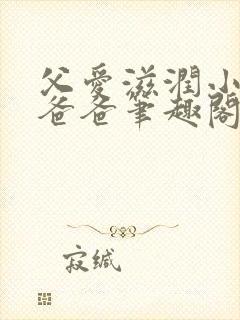 父爱滋润小
爸爸笔趣阁
寂缄